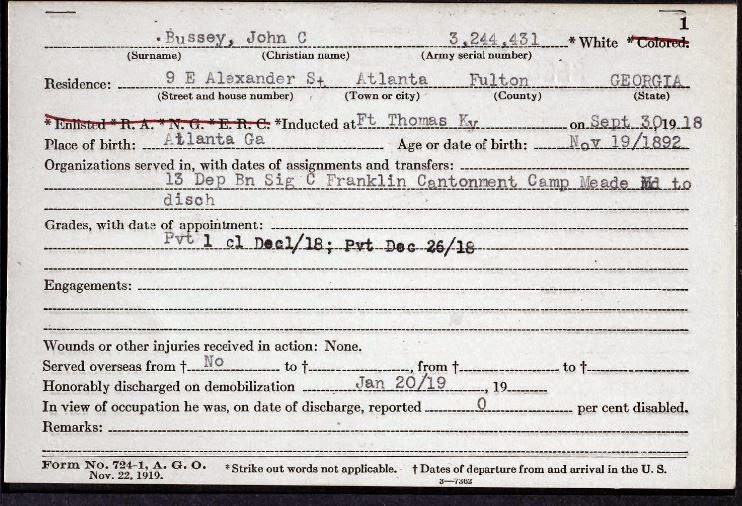 1
Bussey, John C 3,244,431 *White *Colored.
(Surname) (Christian name) (Army serial number)
Residence: 9 E Alexander St Atlanta Fulton GEORGIA
(Street and house number) (Town or city) (County) (State)
*Enlisted *R. A. *N. G. *E. R. C. *Inducted at Ft Thomas Ky on Sept 30, 19 18
Place of birth: Atlanta Ga Age or date of birth: Nov 19/1892
Organizations served in, with dates of assignments and transfers:
13 Dep Bn Sig C Franklin Cantonment Camp Meade Md to
disch
Grades, with date of appointment:
Pvt 1 cl Dec1/18; Pvt Dec 26/18
Engagements:
Wounds or other injuries received in action: None.
Served overseas from † No to †, from † to †
Honorably discharged on demobilization Jan 20/19, 19
In view of occupation he was, on date of discharge, reported 0 per cent disabled.
Remarks:
Form No. 724-1, A. G. O. *Strike out words not applicable. † Dates of departure from and arrival in the U. S.
Nov. 22, 1919. 3—7362